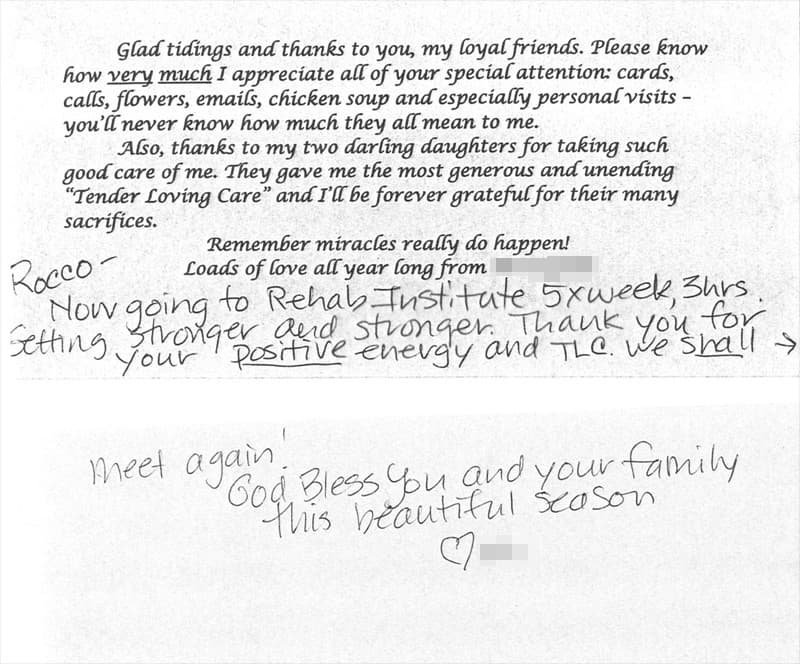 Glad tidings and thanks to you, my loyal friends. Please know
how very much I appreciate all of your special attention: cards,
calls, flowers, emails, chicken soup and especially personal visits –
you'll never know how much they all mean to me.
Also, thanks to my two darling daughters for taking such
good care of me. They gave me the most generous and unending
“Tender Loving Care” and I'll be forever grateful for their many
sacrifices.
Remember miracles really do happen!
Loads of love all year long from
Rocco –
Now going to Rehab Institute 5xweek, 3hrs.
Getting stronger and stronger. Thank you for
your positive energy and TLC. We shall →
meet again!
God Bless You and your family
this beautiful season
♡